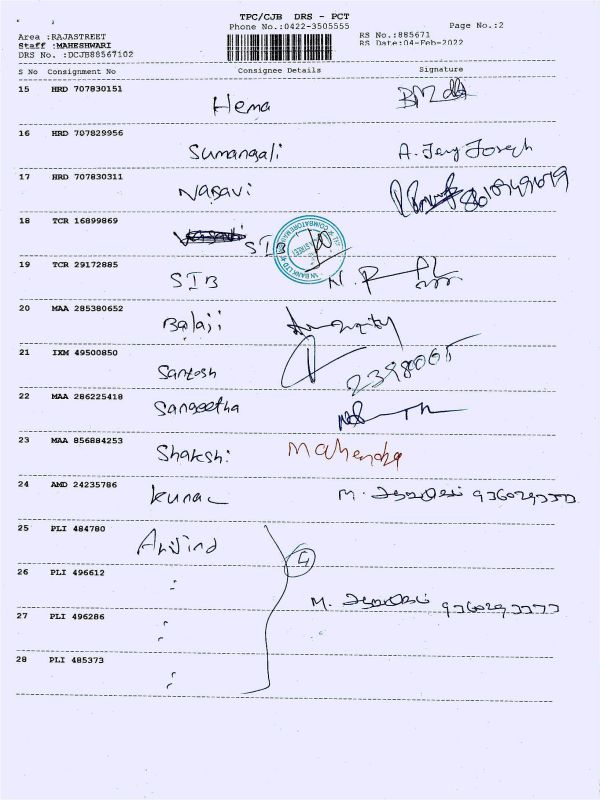 TPC/CJB DRS - PCT
Phone No.:0422-3505555
Page No.:2
Area :RAJASTREET
Staff :MAHESHWARI
DRS No. :DCJB88567102
RS No.:885671
RS Date:04-Feb-2022
S No Consignment No Consignee Details Signature
15 HRD 707830151
Hema
16 HRD 707829956
Sumangali A. Jeny Joseph
17 HRD 707830311
Nagavi
18 TCR 16899869
SIB
19 TCR 29172885
SIB
20 MAA 285380652
Balaji
21 IXM 49500850
Santosh
22 MAA 286225418
Sangeetha
23 MAA 856884253
Shakshi Mahendra
24 AMD 24235786
Kunal M.
25 PLI 484780
Arvind
4
26 PLI 496612
"
M.
27 PLI 496286
"
28 PLI 485373
"